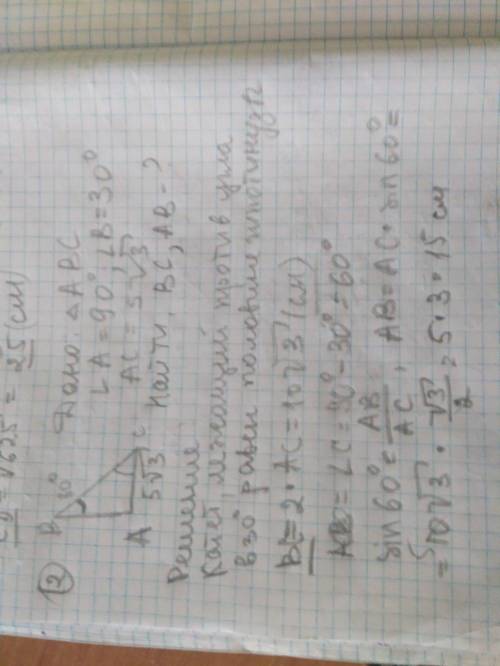 = √625 = 25 (см)
② Дано: △ABC
∠A = 90°, ∠B = 30°
AC = 5√3
Найти: BC, AB - ?
B 30°
A 5√3 C
Решение
Катет, лежащий против угла
в 30° равен половине гипотенузы
BC = 2 · AC = 10√3 (см)
∠C = 90° - 30° = 60°
sin 60° = AB/AC, AB = AC · sin 60° =
= 10√3 · √3/2 = 5 · 3 = 15 см